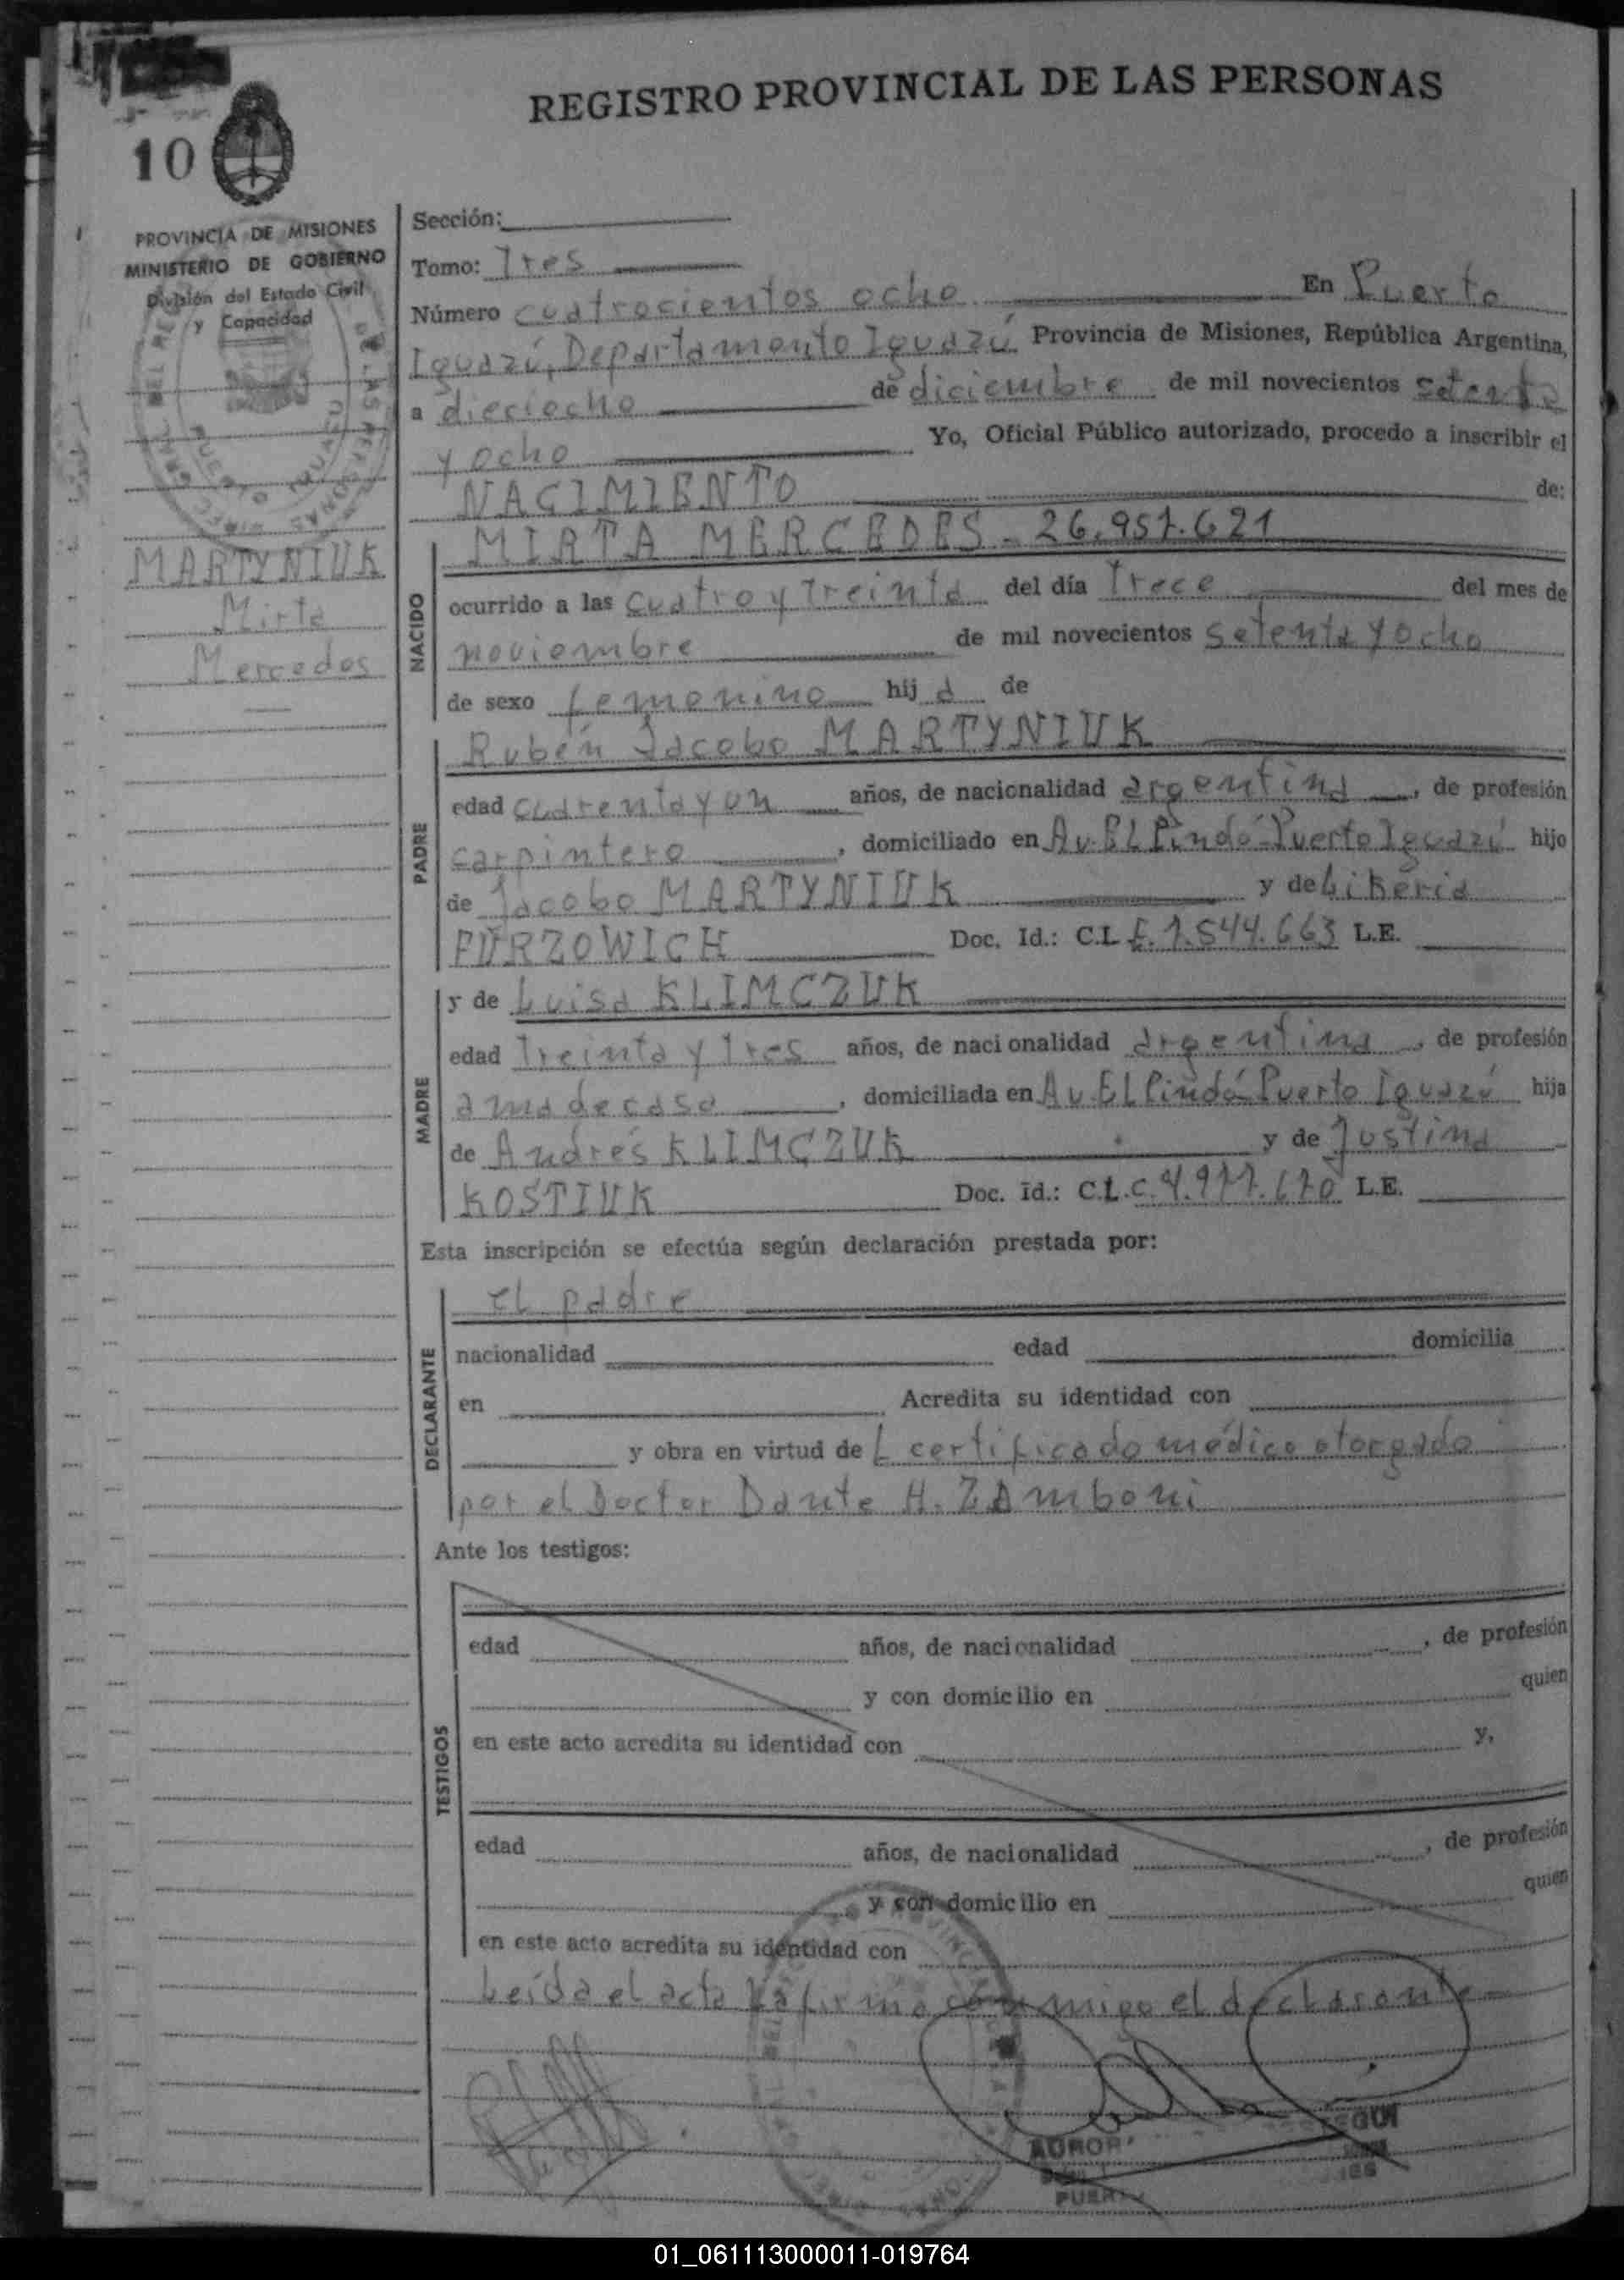 REGISTRO PROVINCIAL DE LAS PERSONAS
10
PROVINCIA DE MISIONES
MINISTERIO DE GOBIERNO
División del Estado Civil
y Capacidad
MARTYNIUK
Mirta
Mercedes
Sección:
Tomo: Tres
Número cuatrocientos ocho En Puerto
Iguazú, Departamento Iguazú Provincia de Misiones, República Argentina,
a dieciocho de diciembre de mil novecientos setenta
y ocho Yo, Oficial Público autorizado, procedo a inscribir el
NACIMIENTO de:
MIRTA MERCEDES - 26.957.621
NACIDO
ocurrido a las cuatro y treinta del día trece del mes de
noviembre de mil novecientos setenta y ocho
de sexo femenino hija de
Rubén Jacobo MARTYNIUK
PADRE
edad cuarenta y un años, de nacionalidad argentina, de profesión
carpintero, domiciliado en Av. El Pindó-Puerto Iguazú hijo
de Jacobo MARTYNIUK y de Likeria
FURZOWICH Doc. Id.: C.I. 7.544.663 L.E.
MADRE
y de Luisa KLIMCZUK
edad treinta y tres años, de nacionalidad argentina, de profesión
ama de casa, domiciliada en Av El Pindó-Puerto Iguazú hija
de Andrés KLIMCZUK y de Justina
KOSTIUK Doc. Id.: C.I. L.C. 4.977.670 L.E.
Esta inscripción se efectúa según declaración prestada por:
DECLARANTE
el padre
nacionalidad edad domicilia
en Acredita su identidad con
y obra en virtud del certificado médico otorgado
por el Doctor Dante H. ZAmboni
Ante los testigos:
TESTIGOS
edad años, de nacionalidad, de profesión
y con domicilio en quien
en este acto acredita su identidad con y,
edad años, de nacionalidad, de profesión
y con domicilio en quien
en este acto acredita su identidad con
Leída el acta la firma conmigo el declarante
01_061113000011-019764